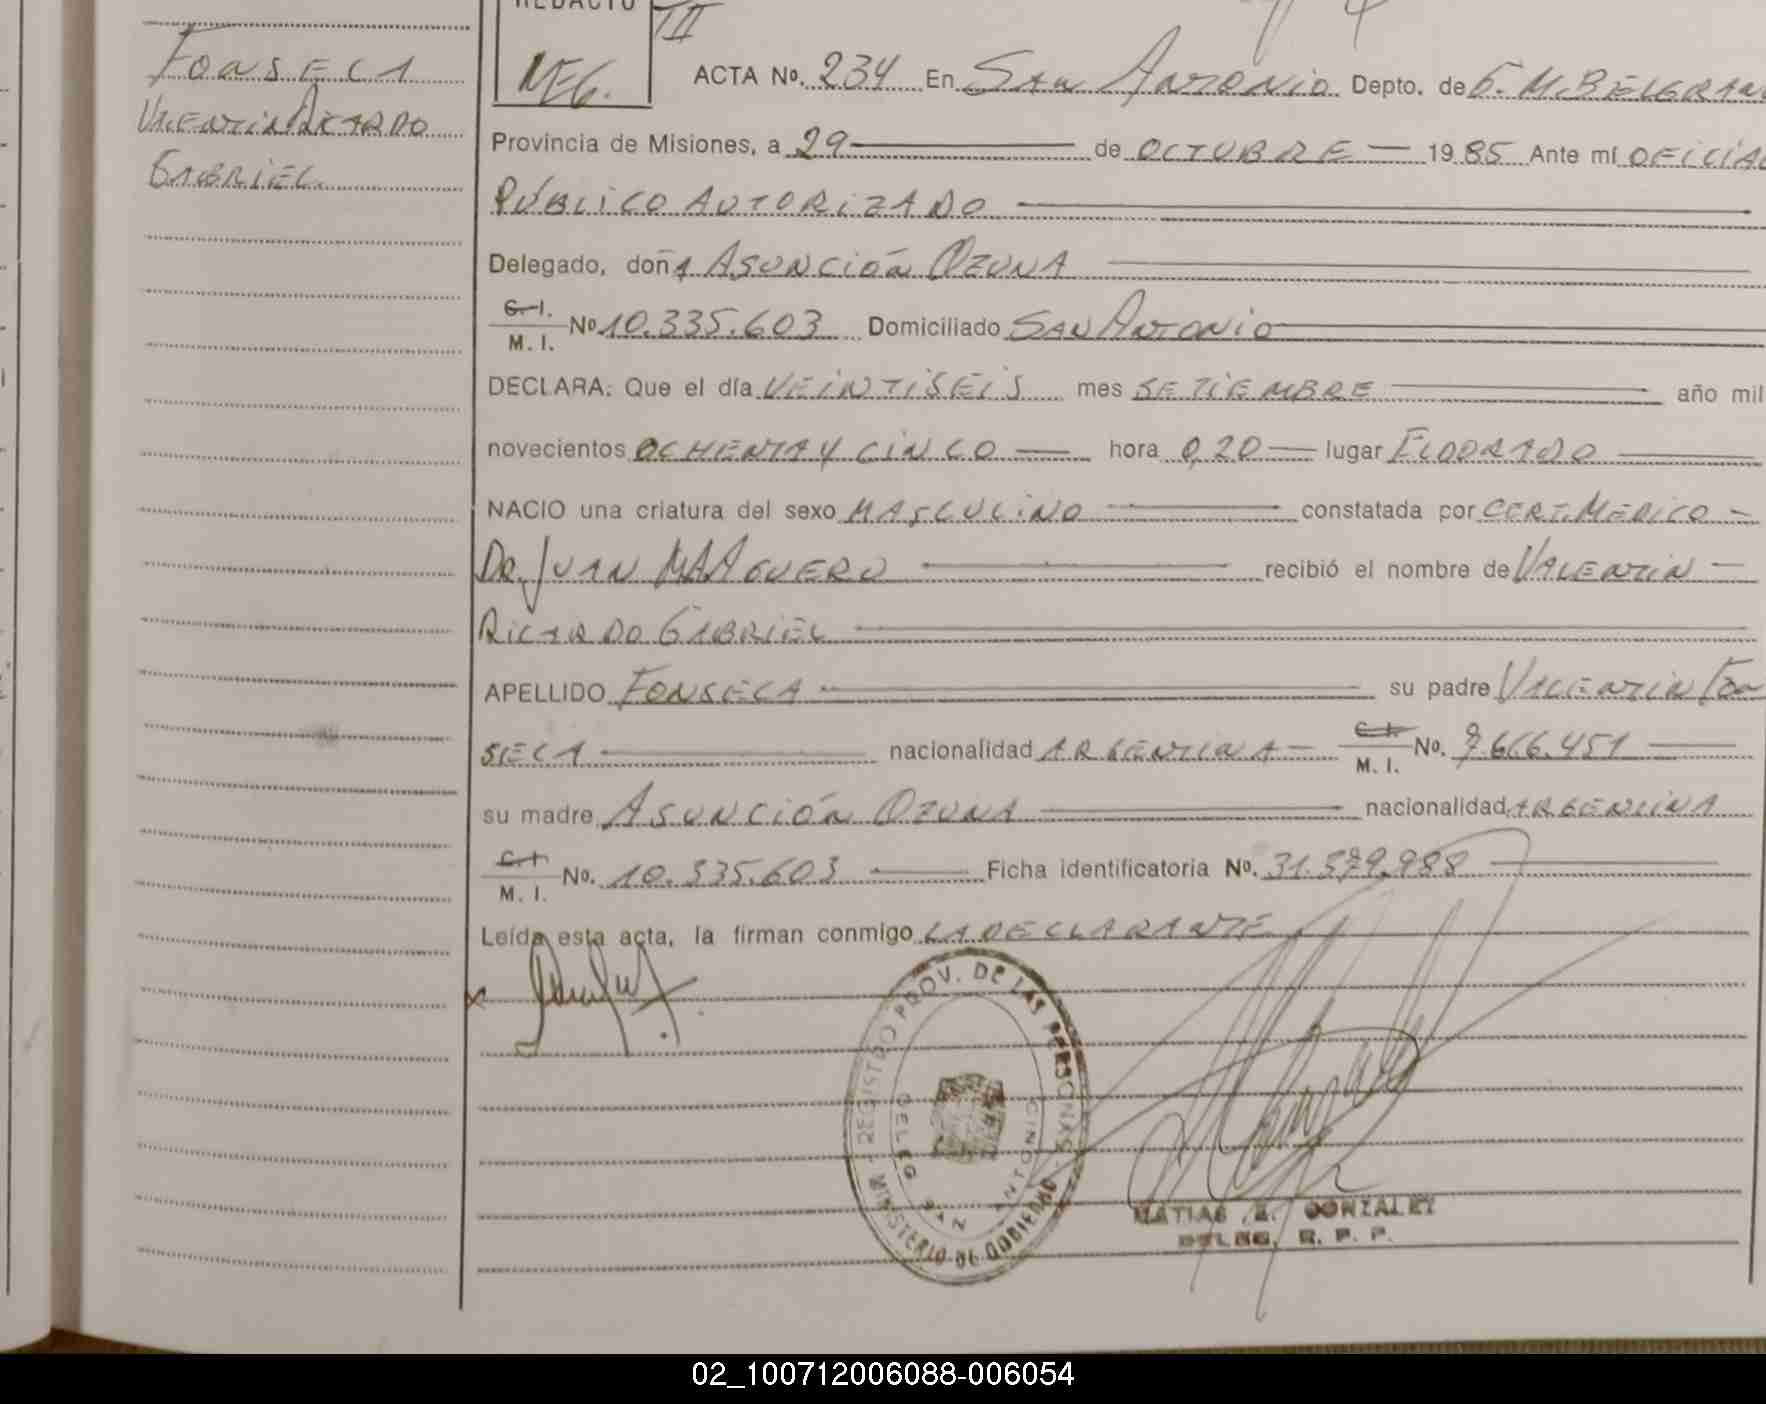 REDACTO
III
NEG.
FONSECA
VALENTIN RICARDO
GABRIEL
ACTA No. 234 En SAN ANTONIO Depto. de G. M. BELGRANO
Provincia de Misiones, a 29 de OCTUBRE 1985 Ante mí OFICIAL
PÚBLICO AUTORIZADO
Delegado, doña ASUNCIÓN OZUNA
C. I.
M. I. No 10.335.603 Domiciliado SAN ANTONIO
DECLARA: Que el día VEINTISEIS mes SETIEMBRE año mil
novecientos OCHENTA Y CINCO hora 0,20 lugar ELDORADO
NACIO una criatura del sexo MASCULINO constatada por CERT. MEDICO
DR. JUAN M. AGUERO recibió el nombre de VALENTIN
RICARDO GABRIEL
APELLIDO FONSECA su padre VALENTIN FON
SECA nacionalidad ARGENTINA C. I. M. I. No.
su madre ASUNCIÓN OZUNA nacionalidad ARGENTINA
C. I.
M. I. No. 10.335.603 Ficha identificatoria No.
Leída esta acta, la firman conmigo LA DECLARANTE
REGISTRO PROV. DE LAS PERSONAS
DELEG. SAN ANTONIO
MINISTERIO DE GOBIERNO
MATIAS GONZALEZ
DELEG. R. P. P.
02_100712006088-006054